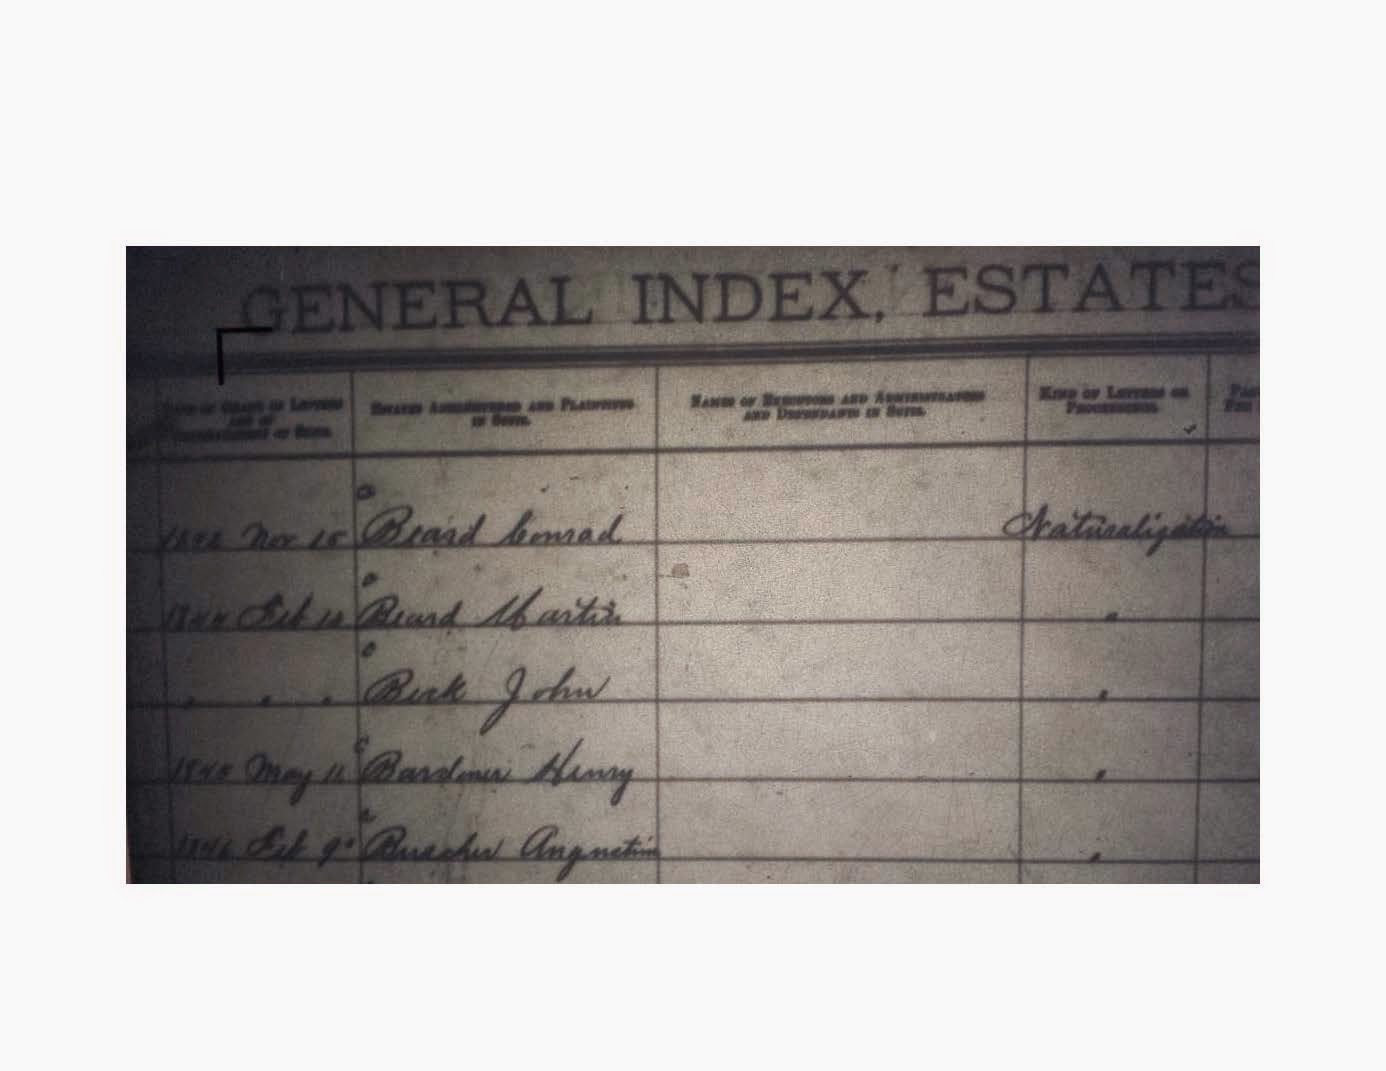 GENERAL INDEX, ESTATES
DATE OF GRANT OF LETTERS
ESTATES ADMINISTERED AND PLAINTIFFS
IN SUITS.
NAMES OF EXECUTORS AND ADMINISTRATORS
AND DEFENDANTS IN SUITS.
KIND OF LETTERS OR
PROCEEDINGS.
Nov 15 Beard Conrad Naturalization
1844 Feb Beard Martin "
" " " Beck John "
1840 May 11 Henry "
1846 Feb 9 "